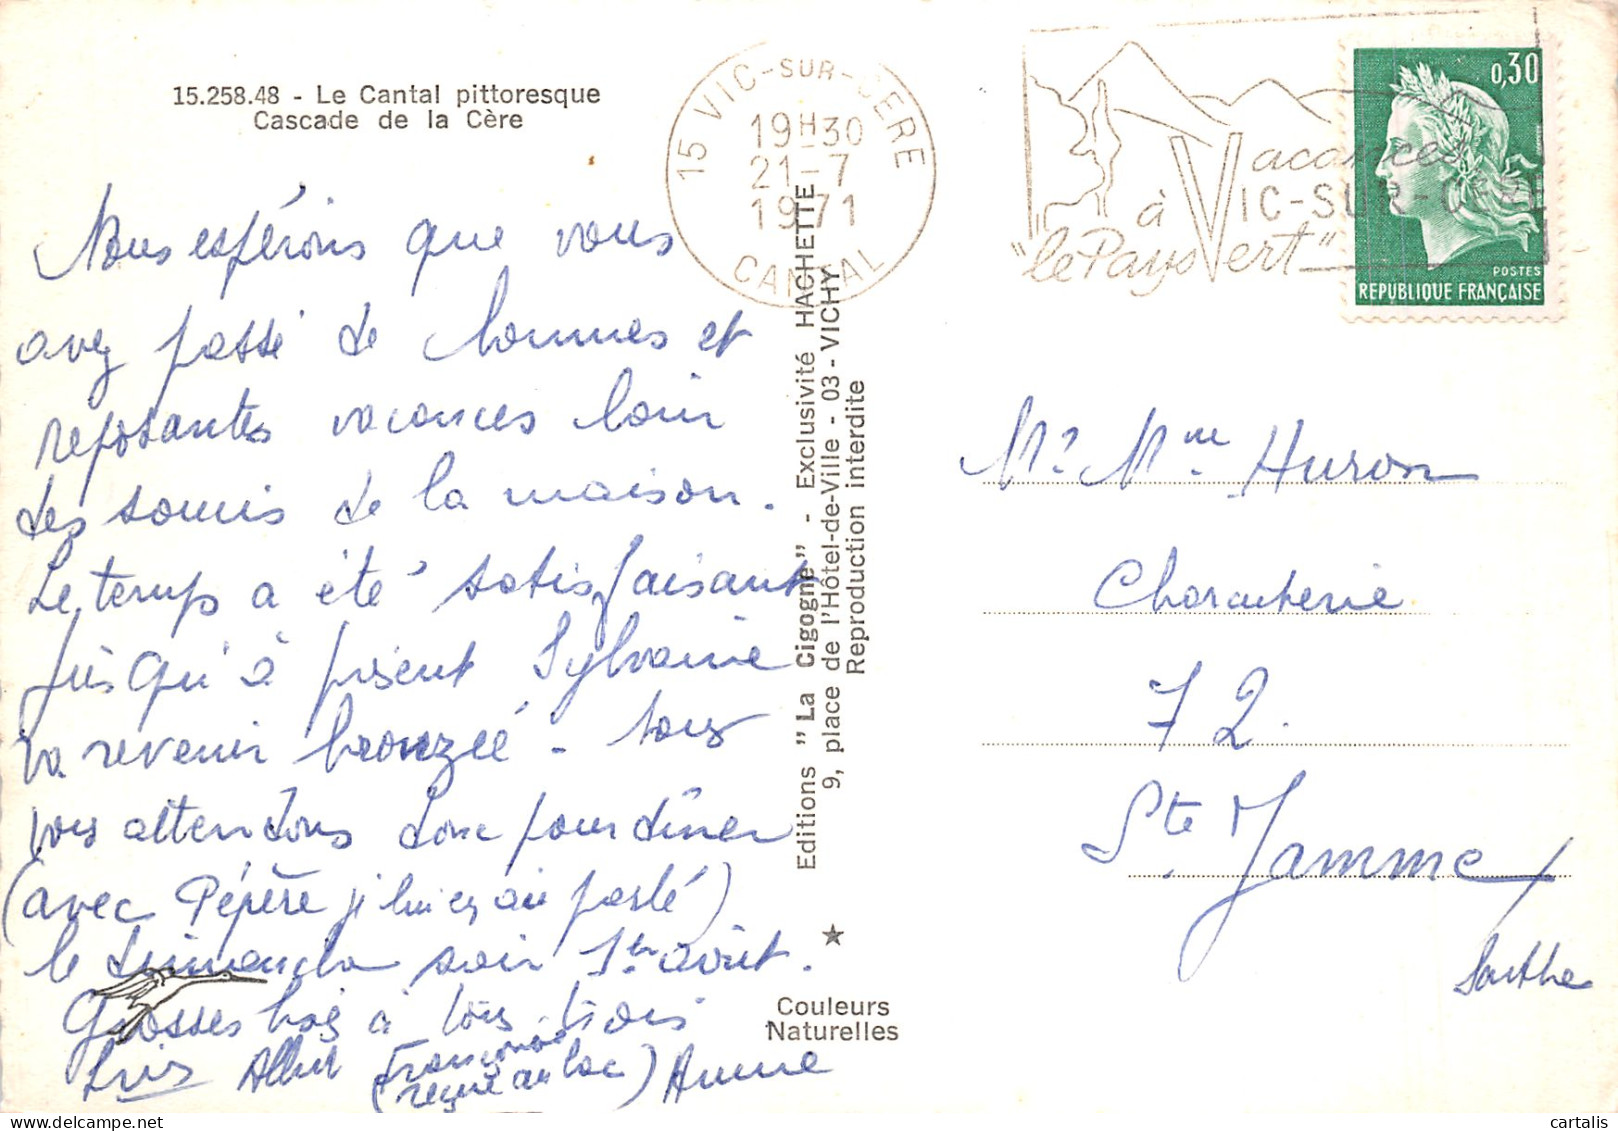 15.258.48 - Le Cantal pittoresque
Cascade de la Cère
Nous espérons que vous
avez passé de bonnes et
reposantes vacances loin
des soucis de la maison.
Le temps a été satisfaisant
jusqu'à présent Sylvaine
va revenir bronzée - Nous
vous attendons donc pour dîner
(avec Pépère j'lui en ai parlé)
le dimanche soir 1er août.
Grosses bises à tous trois
Albert Françoise Anne
(reçue au bac)
15 VIC-SUR-CERE
19H30
21-7
1971
CANTAL
Vacances
à VIC-SUR-CERE
"le Pays Vert"
0,30
POSTES
REPUBLIQUE FRANÇAISE
Editions "La Cigogne" - Exclusivité HACHETTE
9, place de l'Hôtel-de-Ville - 03 - VICHY
Reproduction interdite
Couleurs
Naturelles
Mr Mme Huron
Charcuterie
72.
Ste Jamme
Sarthe
cartalis